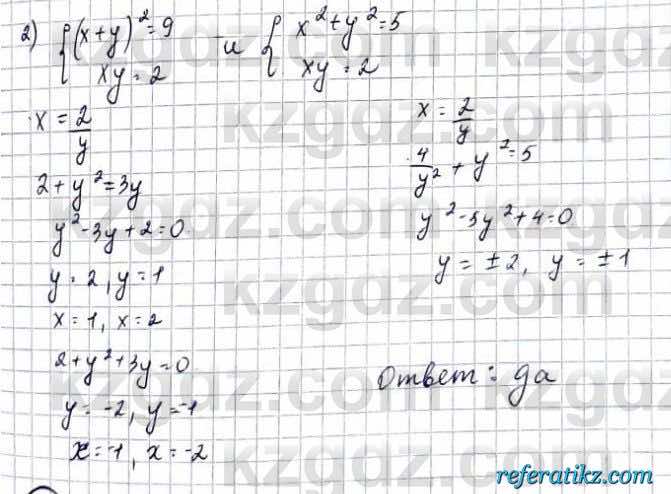 2) { (x+y)²=9 и { x²+y²=5
xy=2 xy=2
x=2/y
2+y²=3y
y²-3y+2=0
y=2, y=1
x=1, x=2
2+y²+3y=0
y=-2, y=-1
x=-1, x=-2
x=2/y
4/y²+y²=5
y²-5y²+4=0
y=±2, y=±1
Ответ: да
kzgdz.com
referatikz.com